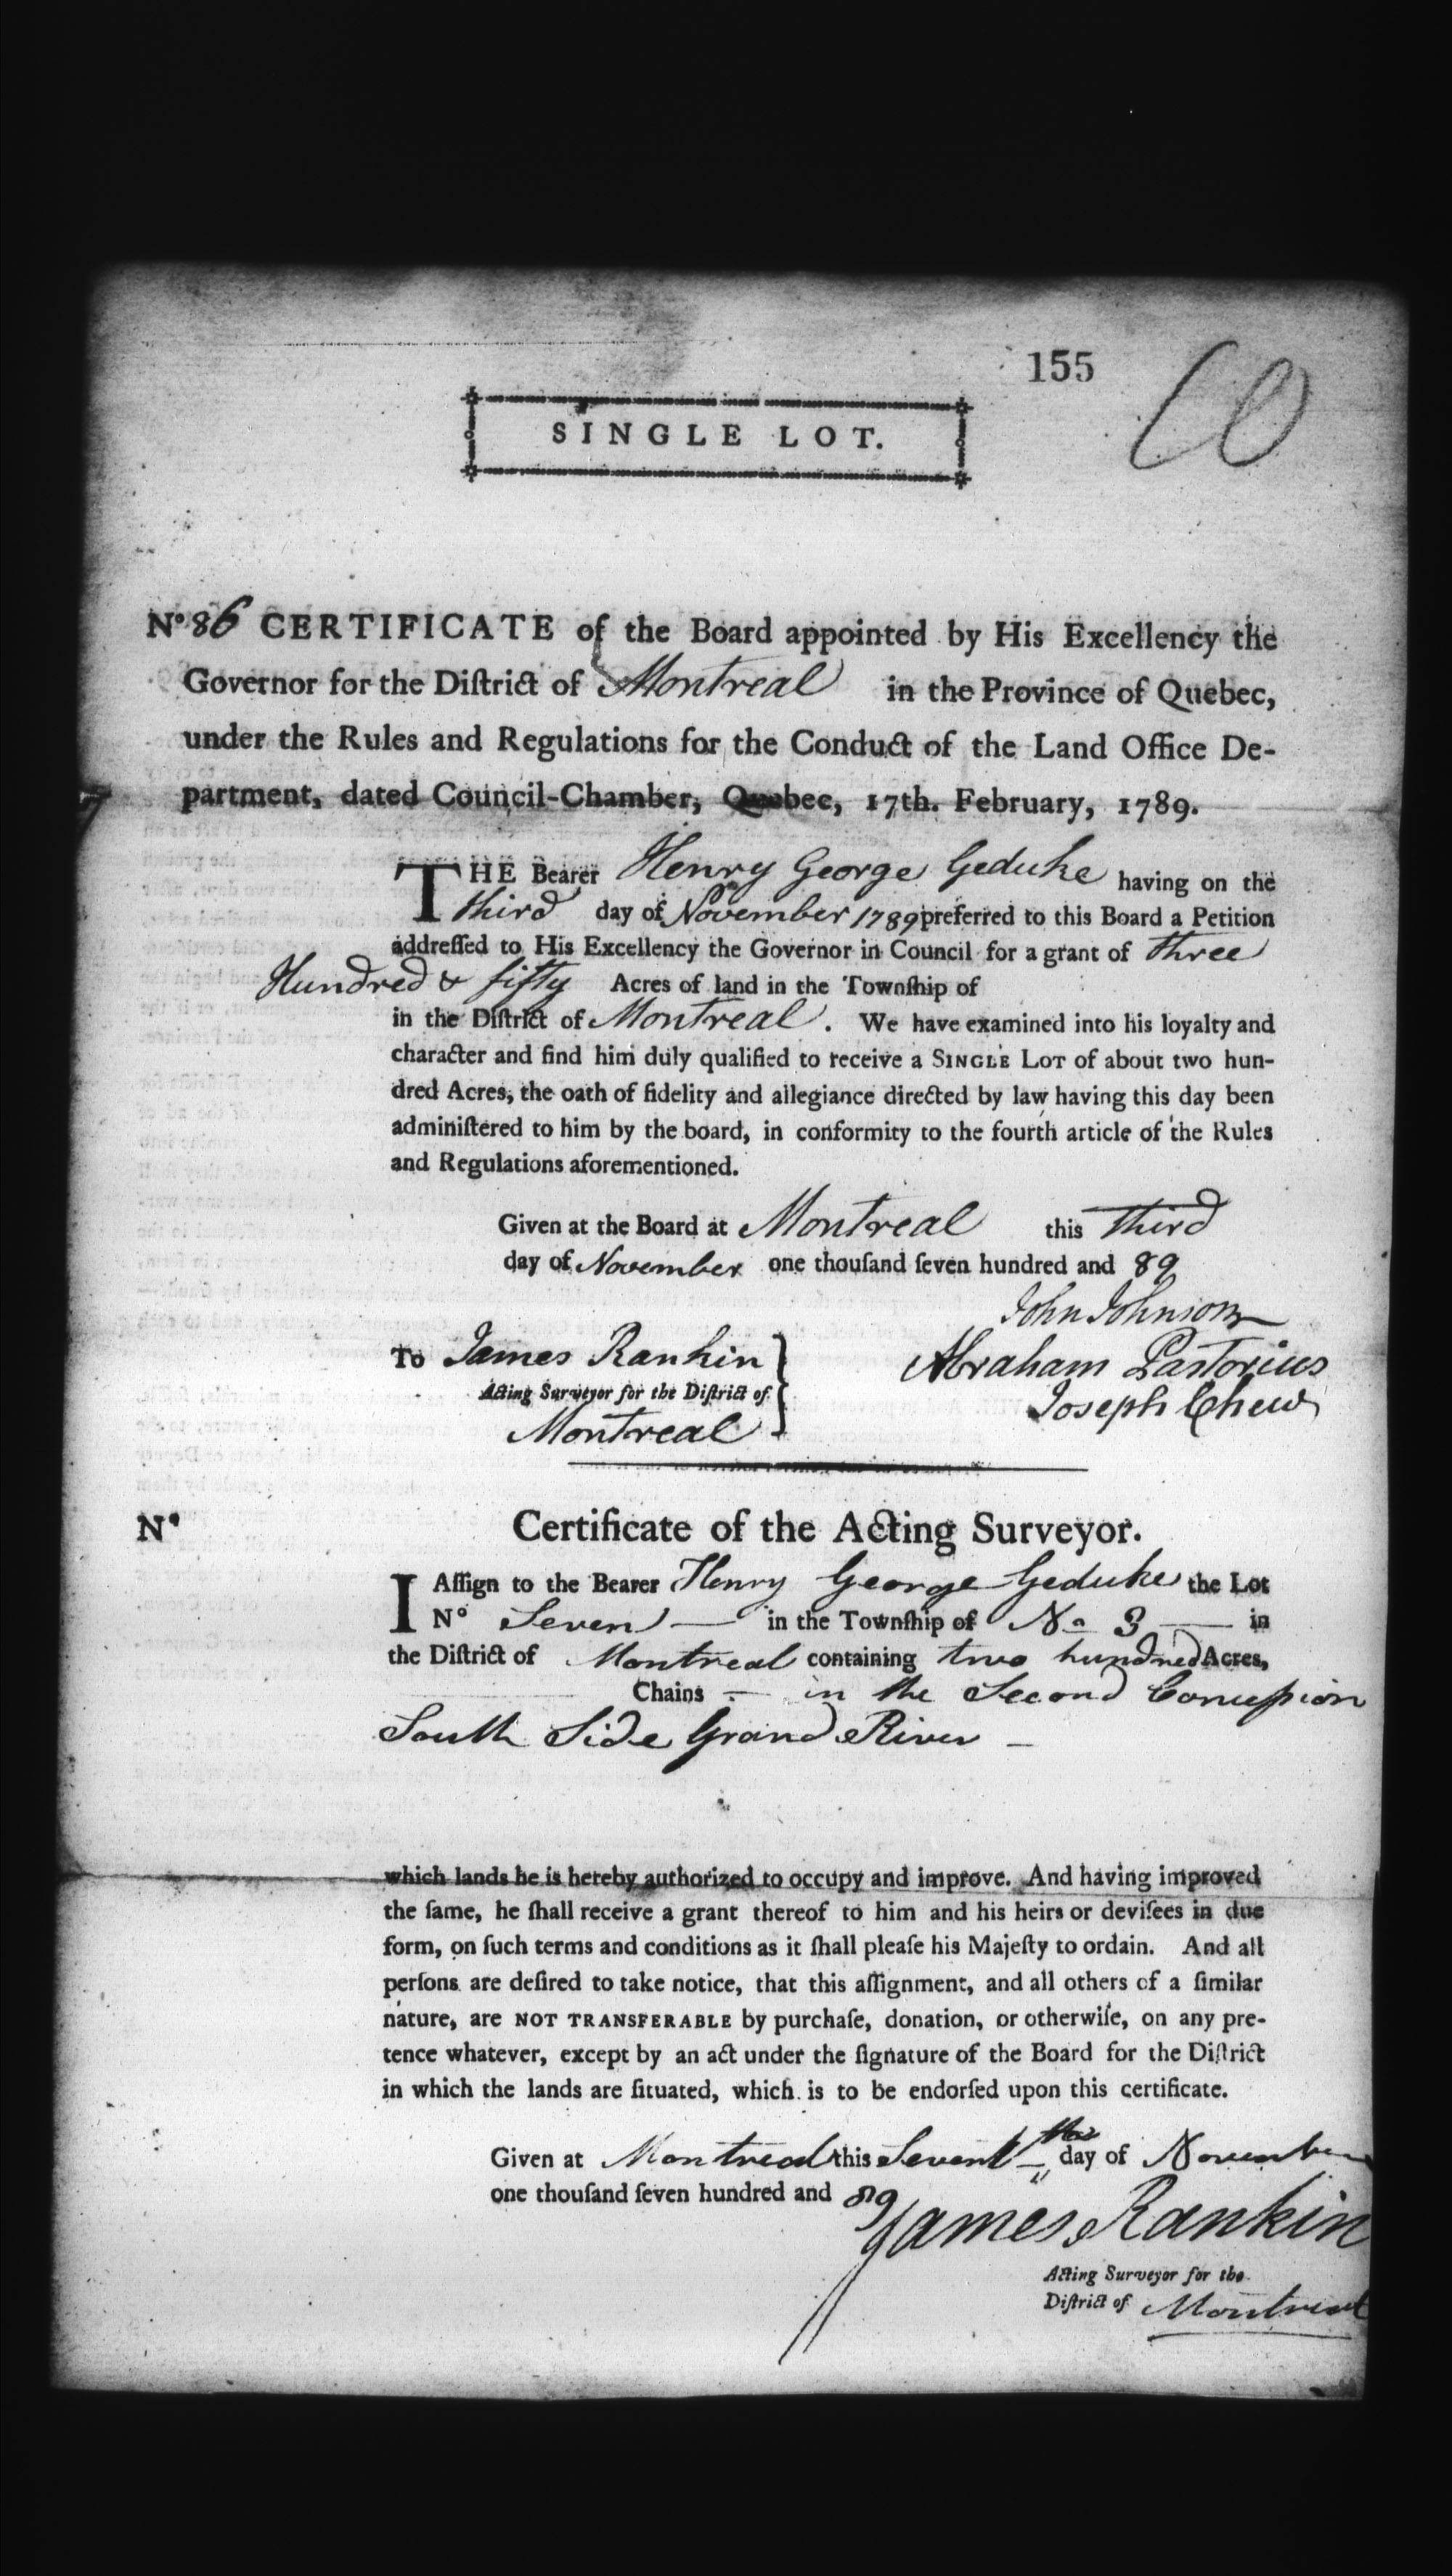 155
SINGLE LOT.
Nº 86 CERTIFICATE of the Board appointed by His Excellency the
Governor for the Diſtrict of Montreal in the Province of Quebec,
under the Rules and Regulations for the Conduct of the Land Office De-
partment, dated Council-Chamber, Quebec, 17th. February, 1789.
THE Bearer Henry George Geduke having on the
third day of November 1789 preferred to this Board a Petition
addreſſed to His Excellency the Governor in Council for a grant of three
Hundred & fifty Acres of land in the Townſhip of
in the Diſtrict of Montreal. We have examined into his loyalty and
character and find him duly qualified to receive a SINGLE LOT of about two hun-
dred Acres, the oath of fidelity and allegiance directed by law having this day been
adminiſtered to him by the board, in conformity to the fourth article of the Rules
and Regulations aforementioned.
Given at the Board at Montreal this third
day of November one thouſand ſeven hundred and 89
John Johnson
To James Rankin
Abraham Pastorius
Acting Surveyor for the Diſtrict of
Joseph Chew
Montreal
Nº Certificate of the Acting Surveyor.
I Aſſign to the Bearer Henry George Geduke the Lot
Nº Seven — in the Townſhip of No 3 — in
the Diſtrict of Montreal containing two hundred Acres,
Chains — in the Second Conceſsion
South Side Grand River —
which lands he is hereby authorized to occupy and improve. And having improved
the ſame, he ſhall receive a grant thereof to him and his heirs or deviſees in due
form, on ſuch terms and conditions as it ſhall pleaſe his Majeſty to ordain. And all
perſons are deſired to take notice, that this aſſignment, and all others of a ſimilar
nature, are NOT TRANSFERABLE by purchaſe, donation, or otherwiſe, on any pre-
tence whatever, except by an act under the ſignature of the Board for the Diſtrict
in which the lands are ſituated, which is to be endorſed upon this certificate.
Given at Montreal this Seventh day of November
one thouſand ſeven hundred and 89
James Rankin
Acting Surveyor for the
Diſtrict of Montreal